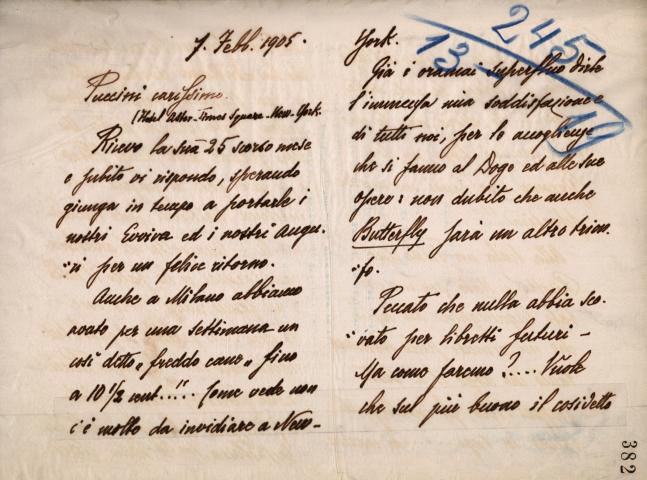 7. Febb. 1905.
Puccini carissimo.
(Hotel Astor-Times Square-New-York.
Ricevo la sua 25 scorso mese
e subito vi rispondo, sperando
giunga in tempo a portarle i
nostri Evviva ed i nostri Augu-
:ri per un felice ritorno.
Anche a Milano abbiamo
avuto per una settimana un
così detto „freddo cane„ fino
a 10 1/2 cent.....!! Come vede non
c'è molto da invidiare a New-
York.
Già è oramai superfluo dirle
l'immensa mia soddisfazione e
di tutti noi, per le accoglienze
che si fanno al Doge ed alle sue
opere: non dubito che anche
Butterfly sarà un altro trion-
:fo.
Peccato che nulla abbia sco-
:vato per libretti futuri -
Ma come faremo?.... Vuole
che sul più buono il cosidetto
245
13
19
382